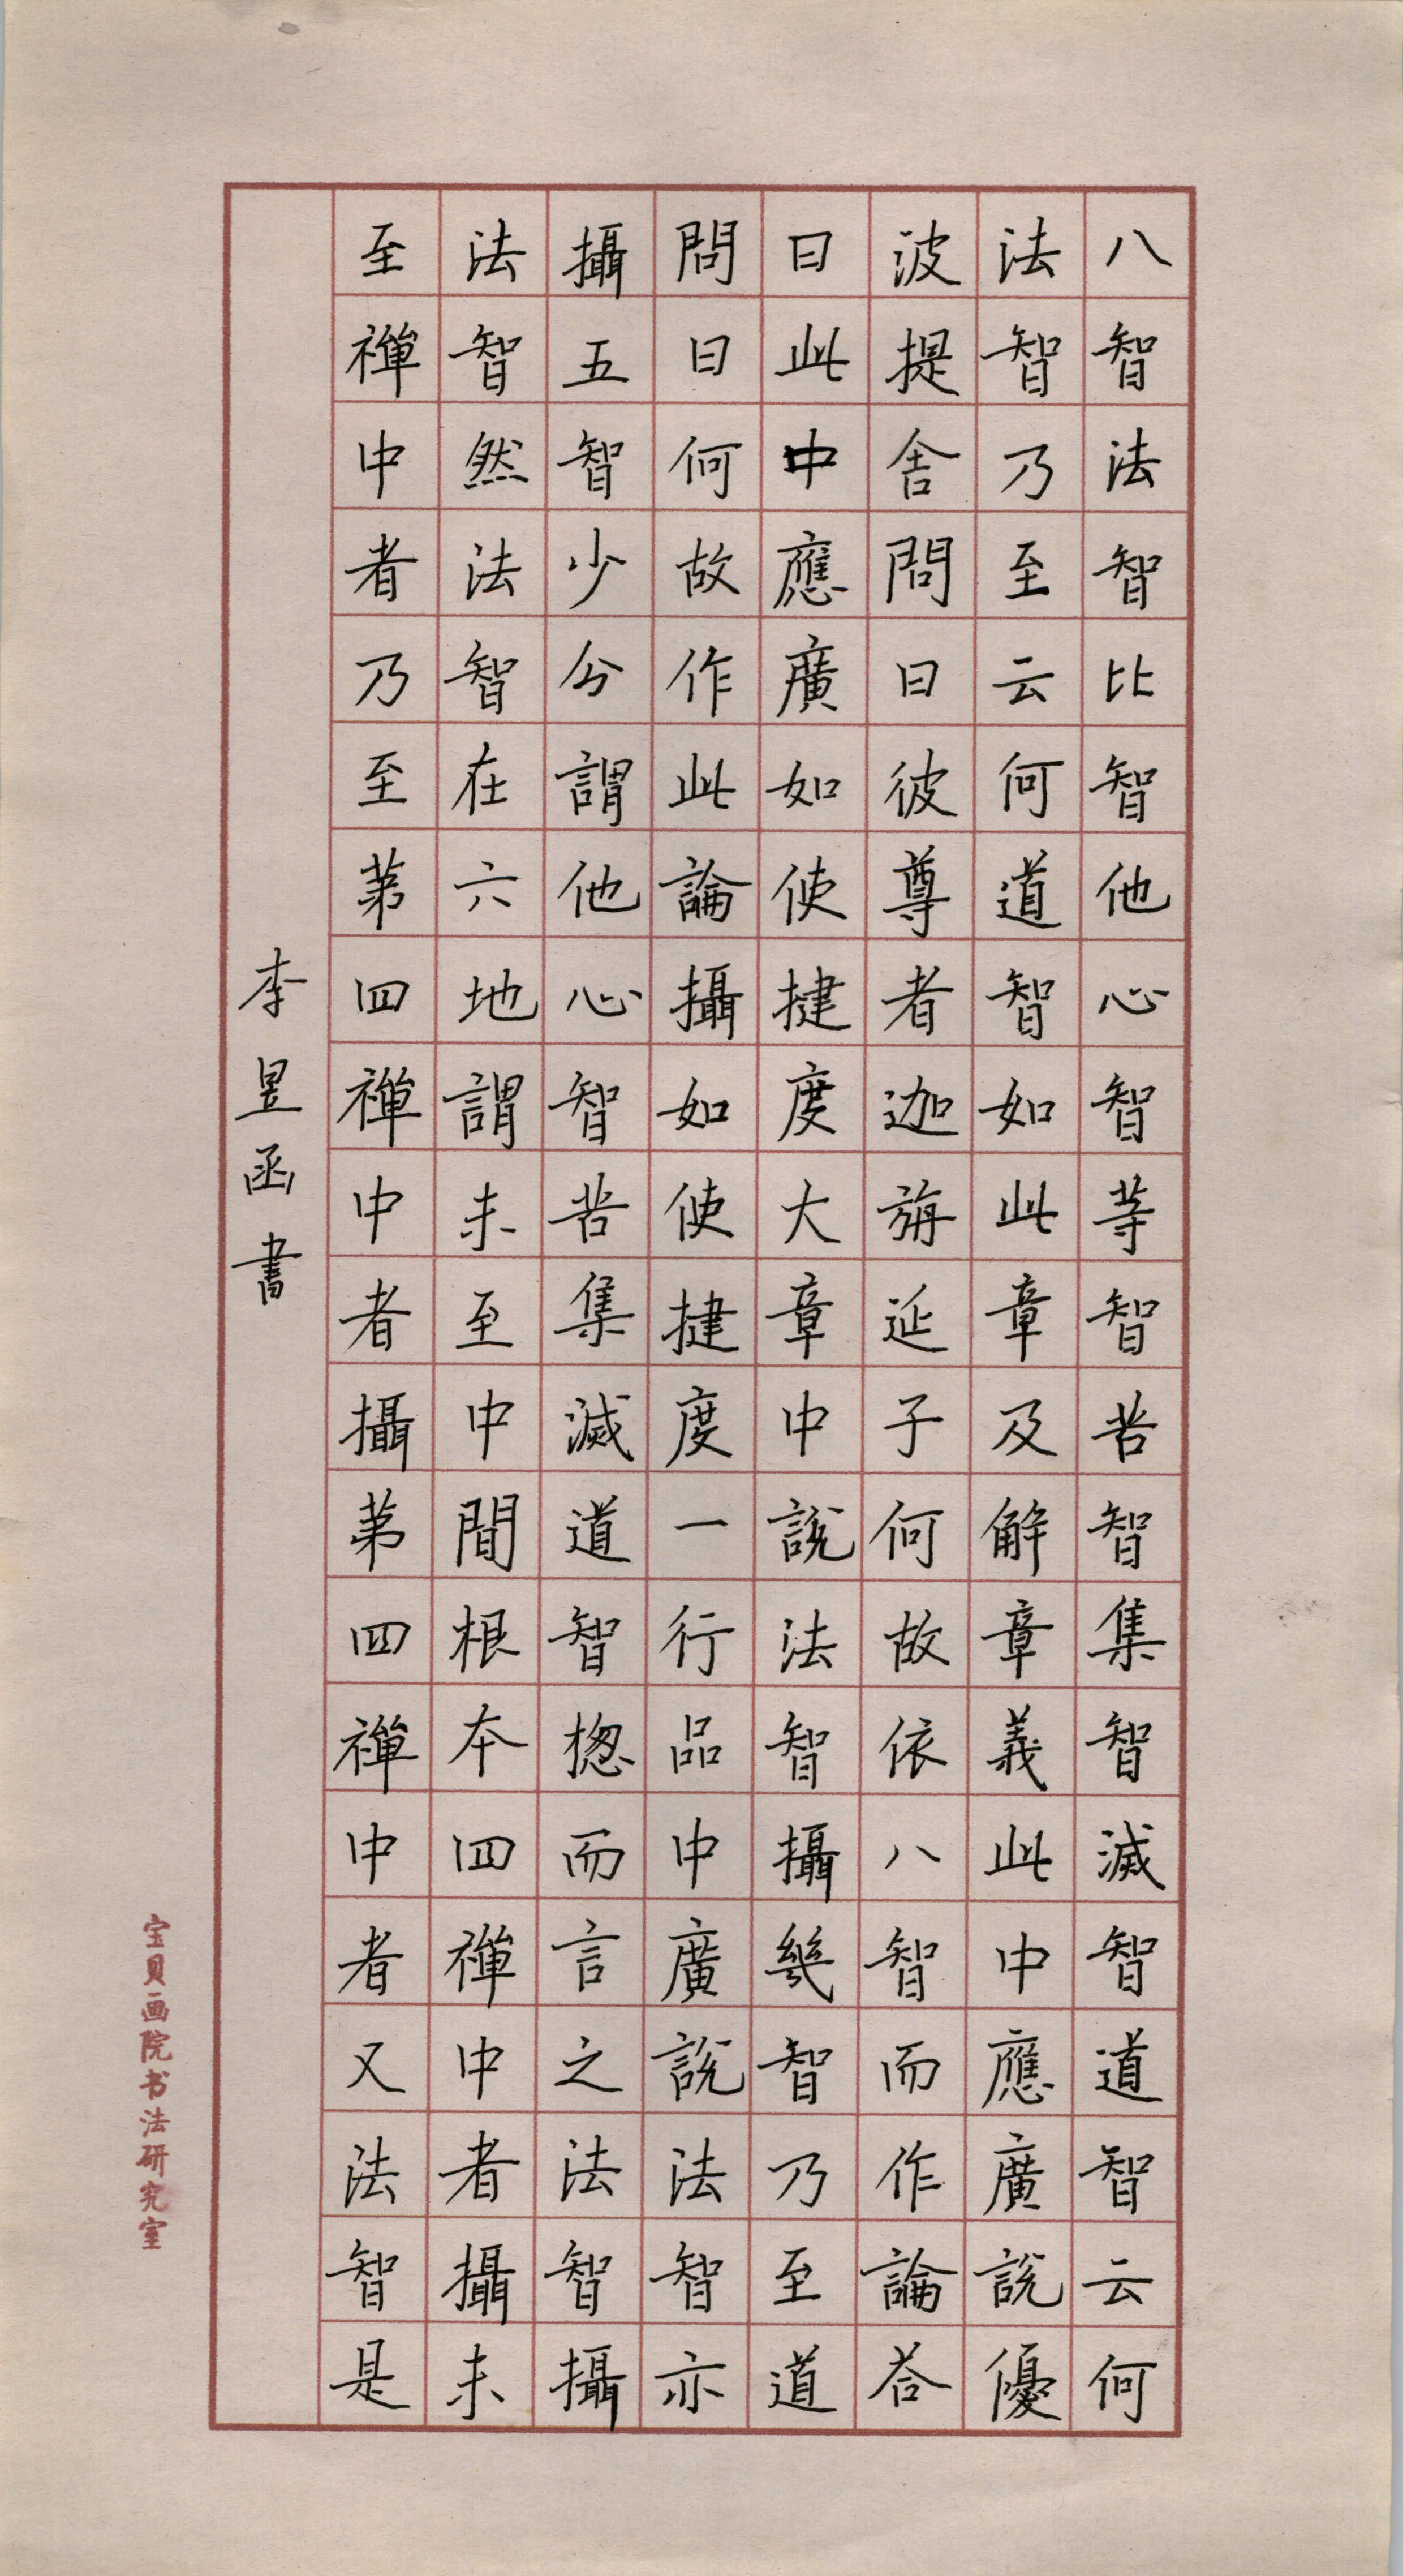 八智法智比智他心智等智苦智集智滅智道智云何
法智乃至云何道智如此章及解章義此中應廣說優
波提舍問曰彼尊者迦旃延子何故依八智而作論荅
曰此中應廣如使揵度大章中說法智攝幾智乃至道
問曰何故作此論攝如使揵度一行品中廣說法智亦
攝五智少分謂他心智苦集滅道智揔而言之法智攝
法智然法智在六地謂未至中間根本四禪中者攝未
至禪中者乃至第四禪中者攝第四禪中者又法智是
李昱函書
宝贝画院书法研究室